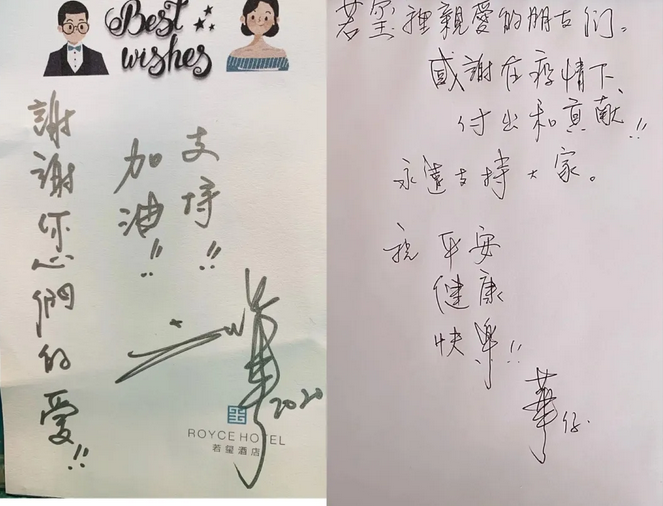 Best
wishes
支持!!
加油!!
謝謝你們的愛!!
華
2020
ROYCE HOTEL
若璽酒店
若璽裡親愛的朋友们。
感謝在疫情下、
付出和貢献!!
永遠支持大家。
祝平安
健康
快樂!!
華仔